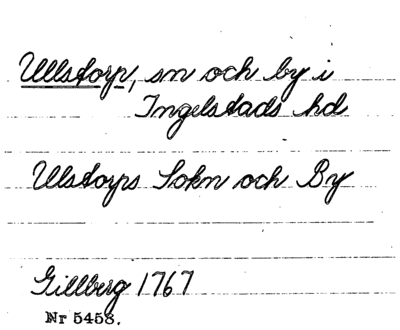 Ullstorp, sn och by i
Ingelstads hd
Ulstorps Sokn och By
Gillberg 1767
Nr 5458.